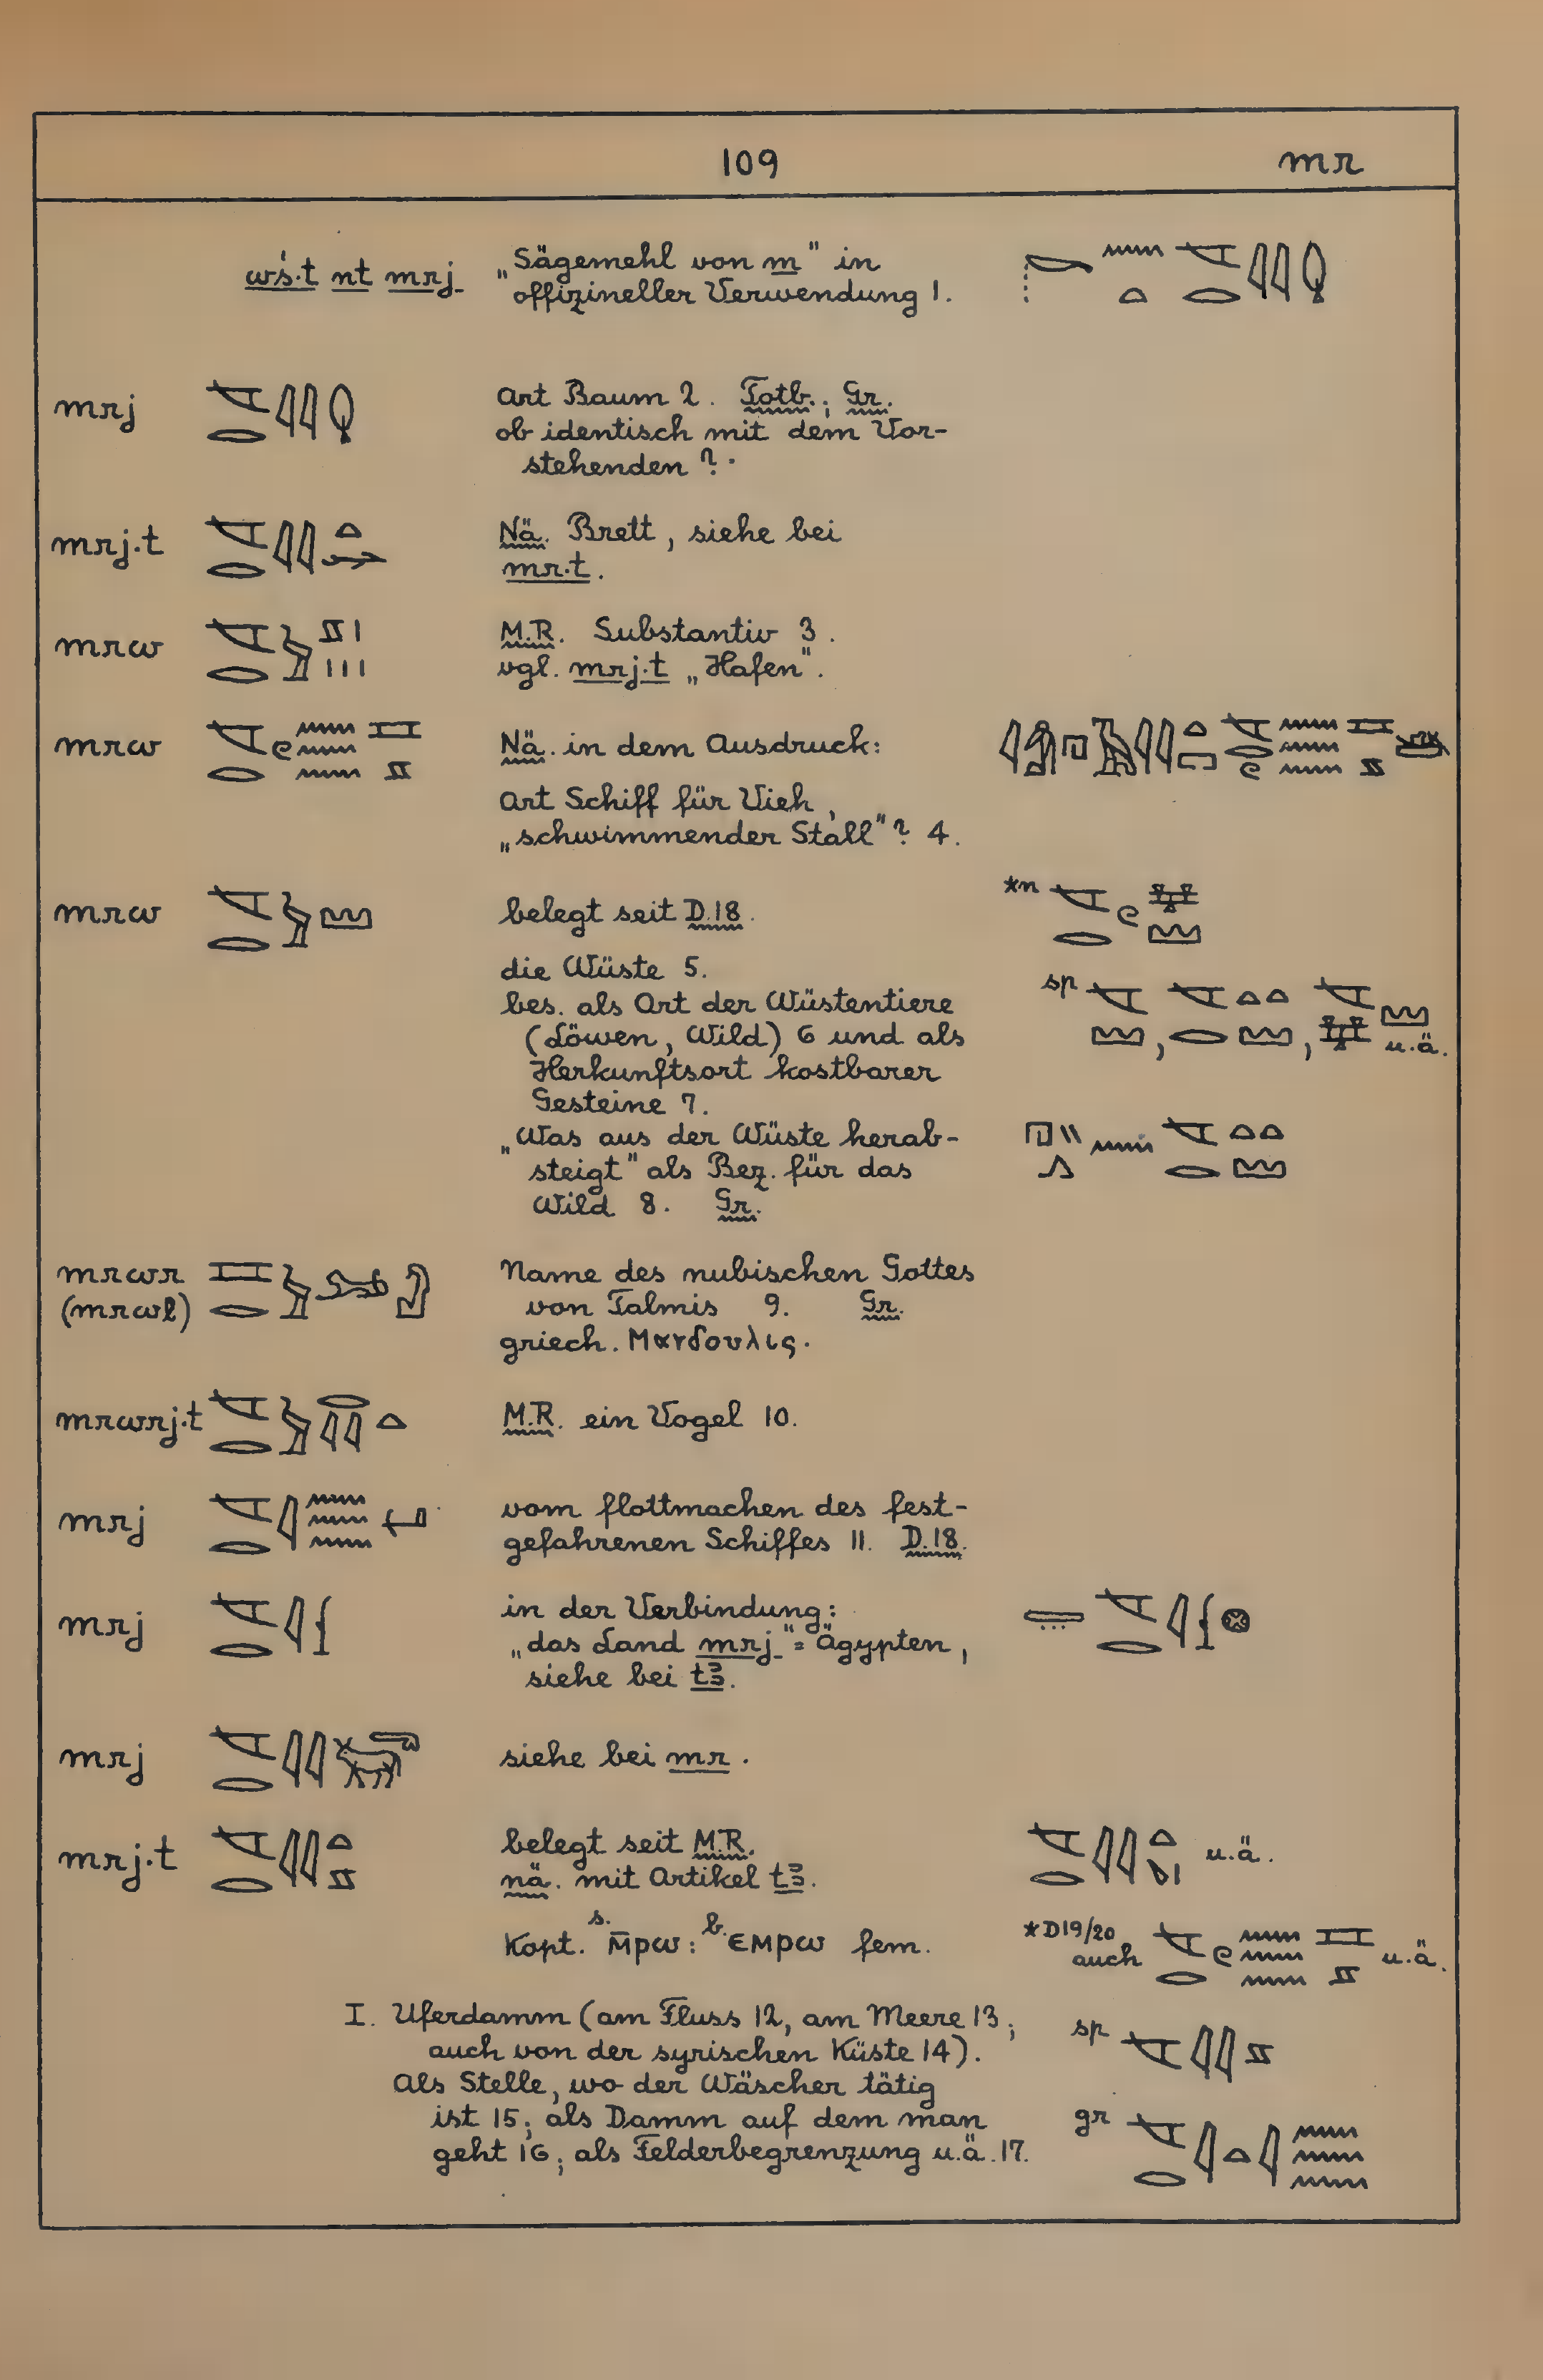 109 mr
wś·t nt mrj „Sägemehl von m" in
offizineller Verwendung 1.
mrj Art Baum 2. Totb.; Gr.
ob identisch mit dem Vor-
stehenden?
mrj·t Nä. Brett, siehe bei
mr·t.
mrw M.R. Substantiv 3.
vgl. mrj·t „Hafen".
mrw Nä. in dem Ausdruck:
Art Schiff für Vieh,
„schwimmender Stall"? 4.
mrw belegt seit D.18. *n
die Wüste 5.
bes. als Ort der Wüstentiere sp
(Löwen, Wild) 6 und als , , u.ä.
Herkunftsort kostbarer
Gesteine 7.
„Was aus der Wüste herab-
steigt" als Bez. für das
Wild 8. Gr.
mrwr Name des nubischen Gottes
(mrwl) von Talmis 9. Gr.
griech. Μανδουλις.
mrwrj·t M.R. ein Vogel 10.
mrj vom flottmachen des fest-
gefahrenen Schiffes 11. D.18.
mrj in der Verbindung:
„das Land mrj" = Ägypten,
siehe bei tꜣ.
mrj siehe bei mr.
mrj·t belegt seit M.R. u.ä.
nä. mit Artikel tꜣ.
Kopt. s. ⲙ̄ⲣⲱ: b. ⲉⲙⲣⲱ fem. *D19/20
auch u.ä.
I. Uferdamm (am Fluss 12, am Meere 13; sp
auch von der syrischen Küste 14).
Als Stelle, wo der Wäscher tätig
ist 15; als Damm auf dem man gr
geht 16; als Felderbegrenzung u.ä. 17.